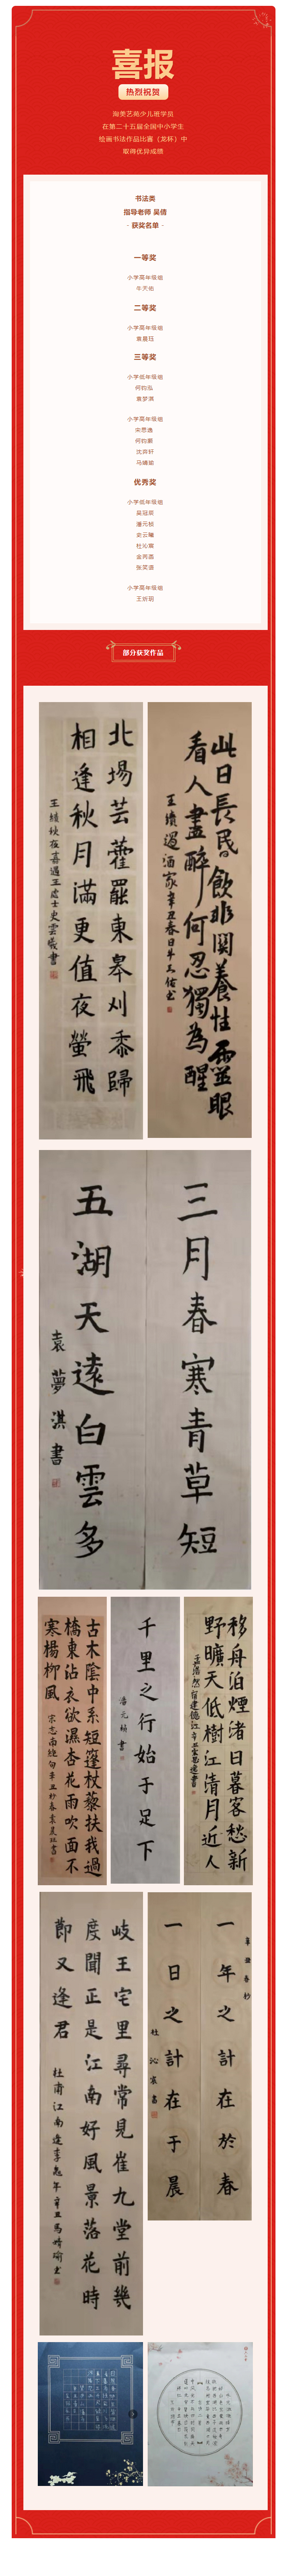 喜报
热烈祝贺
海美艺苑少儿班学员
在第二十五届全国中小学生
绘画书法作品比赛(龙杯)中
取得优异成绩
书法类
指导老师 吴倩
- 获奖名单 -
一等奖
小学高年级组
牛天佑
二等奖
小学高年级组
袁晨珏
三等奖
小学低年级组
何钧泓
袁梦淇
小学高年级组
宋思逸
何钧灏
沈弈轩
马晴瑜
优秀奖
小学低年级组
吴冠辰
潘元桢
史云曦
杜沁宸
金芮菡
张芙语
小学高年级组
王妍玥
部分获奖作品
此日長昏飲非關養性靈眼
看人盡醉何忍獨為醒
王績過酒家辛丑春日牛天佑書
北場芸藿罷東皋刈黍歸
相逢秋月滿更值夜螢飛
王績秋夜喜遇王處士史雲曦書
三月春寒青草短
五湖天遠白雲多
袁夢淇書
古木陰中系短篷杖藜扶我過
橋東沾衣欲濕杏花雨吹面不
寒楊柳風
宋志南絕句辛丑春袁晨珏書
千里之行始于足下
潘元楨書
移舟泊煙渚日暮客愁新
野曠天低樹江清月近人
孟浩然宿建德江辛丑宋思逸書
岐王宅里尋常見崔九堂前幾
度聞正是江南好風景落花時
節又逢君
杜甫江南逢李龜年辛丑馬晴瑜書
辛丑春秒
一年之計在於春
一日之計在于晨
杜沁宸書